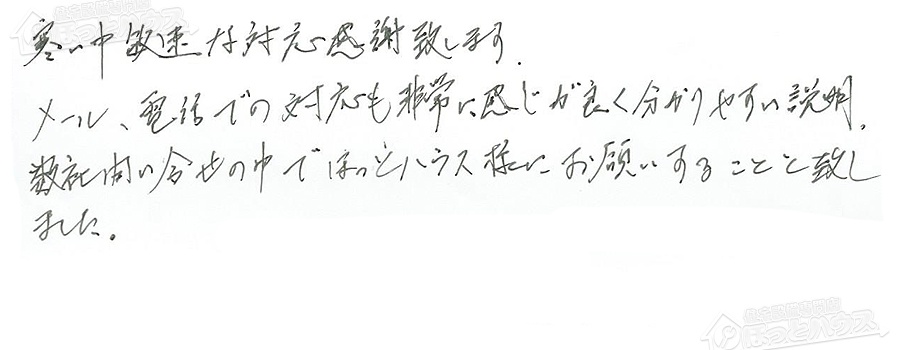 寒い中敏速な対応感謝致します.
メール、電話での対応も非常に感じが良く分かりやすい説明.
数社問い合せの中でほっとハウス様にお願いすることと致し
ました。
住宅設備専門店
ほっとハウス